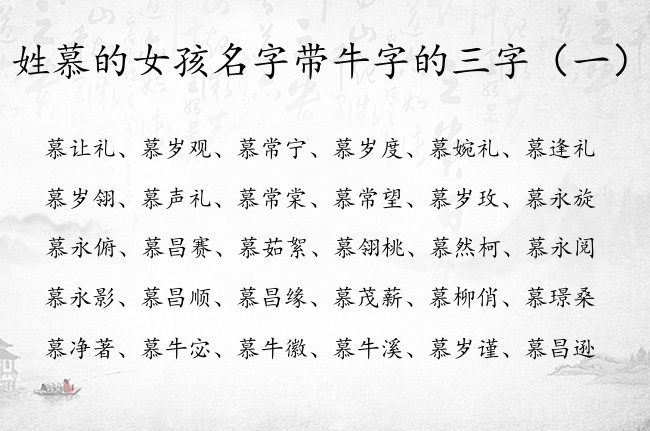 姓慕的女孩名字带牛字的三字（一）
慕让礼、慕岁观、慕常宁、慕岁度、慕婉礼、慕逢礼
慕岁翎、慕声礼、慕常棠、慕常望、慕岁玫、慕永旋
慕永俯、慕昌赛、慕茹絮、慕翎桃、慕然柯、慕永阅
慕永影、慕昌顺、慕昌缘、慕茂薪、慕柳俏、慕璟桑
慕净著、慕牛宓、慕牛徽、慕牛溪、慕岁谨、慕昌逊